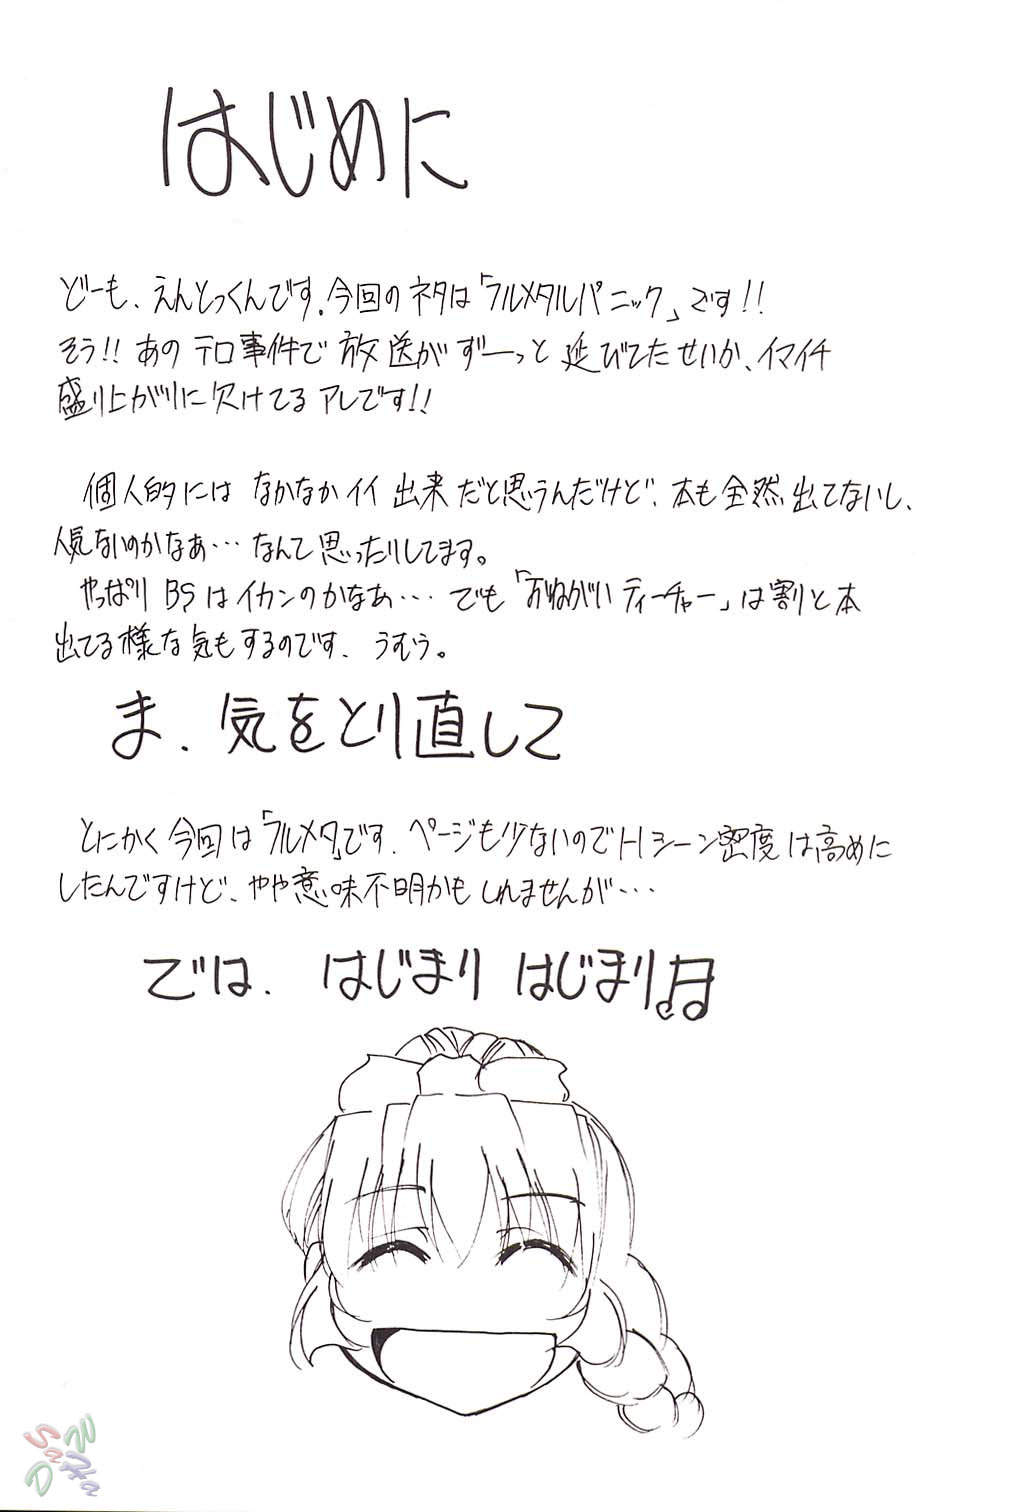 はじめに
どーも、えんとっくんです。今回のネタは「フルメタルパニック」です!!
そう!! あの テロ事件で 放送がずーっと 延びてたせいか、イマイチ
盛り上がりに欠けてる アレです!!
個人的には なかなかイイ 出来だと思うんだけど、本も全然出てないし、
人気ないのかなぁ… なんて思ったりしてます。
やっぱり BSはイカンのかなぁ… でも「おねがいティーチャー」は割と本
出てる様な気もするのです、うむう。
ま、気をとり直して
とにかく今回は「フルメタ」です、ページも少ないのでHシーン密度は高めに
したんですけど、やや意味不明かもしれませんが…
では、はじまり はじまり♫
SaWaDHa